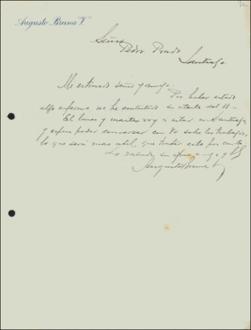 Augusto Bruna V.
Señor
Pedro Prado
Santiago
Me estimado señor y amigo
Por haber estado
algo enfermo no he contestado su carta del 18 -
El lunes y martes voy a estar en Santiago
y espero poder conversar con Ud sobre los trabajos,
lo que será mas util, que tratar esto por carta.
Lo saluda su
Augusto Bruna V.